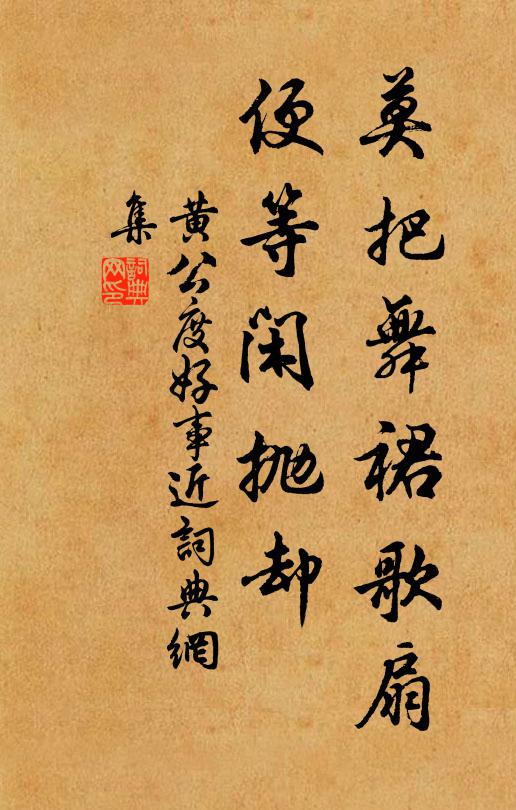 莫把舞裙歌扇
便等闲抛却
黄公度好事近詞典網
集
詞典网印